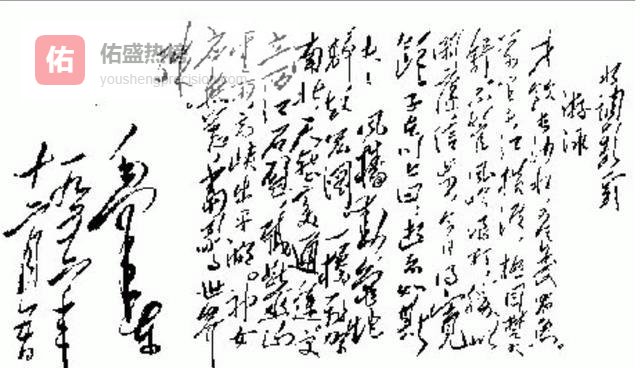 佑
佑盛热榜
youshengprecision.com
水调歌头
游泳
才饮长沙水,又食武昌鱼。
万里长江横渡,极目楚天
舒。不管风吹浪打,胜似
闲庭信步,今日得宽
馀。子在川上曰:逝者如斯
夫! 风樯动,龟蛇
静,起宏图。一桥飞架
南北,天堑变通途。更
立西江石壁,截断巫山
云雨,高峡出平湖。神女
应无恙,当惊世界
殊。
毛泽东
一九五六年
十二月五日